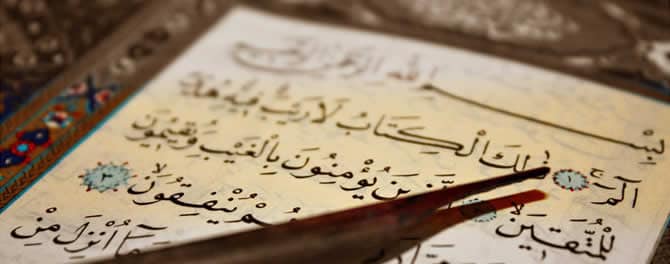 بِسْمِ اللهِ الرَّحْمٰنِ الرَّحِيمِ
الٓمٓ ١ ذٰلِكَ الْكِتَابُ لَا رَيْبَ فِيهِ هُدًى
لِلْمُتَّقِينَ يُؤْمِنُونَ بِالْغَيْبِ وَيُقِيمُونَ
يُنْفِقُونَ
أُنْزِلَ مِنْ